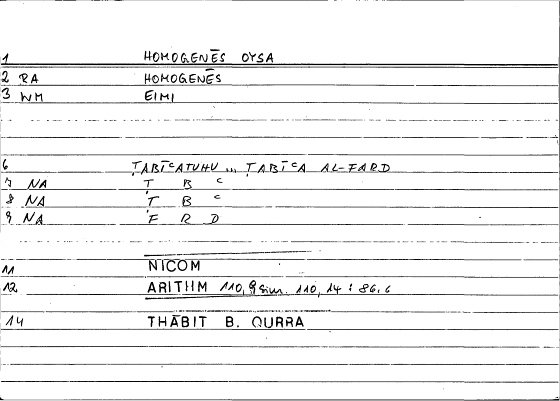 1 HOMOGENĒS OYSA
2 RA HOMOGENĒS
3 WM EIMI
6 ṬABĪʿATUHU ... ṬABĪʿA AL-FARD
7 NA Ṭ B ʿ
8 NA Ṭ B ʿ
9 NA F R D
11 NICOM
12 ARITHM 110,9 sim. 110,14 : 86.6
14 THĀBIT B. QURRA